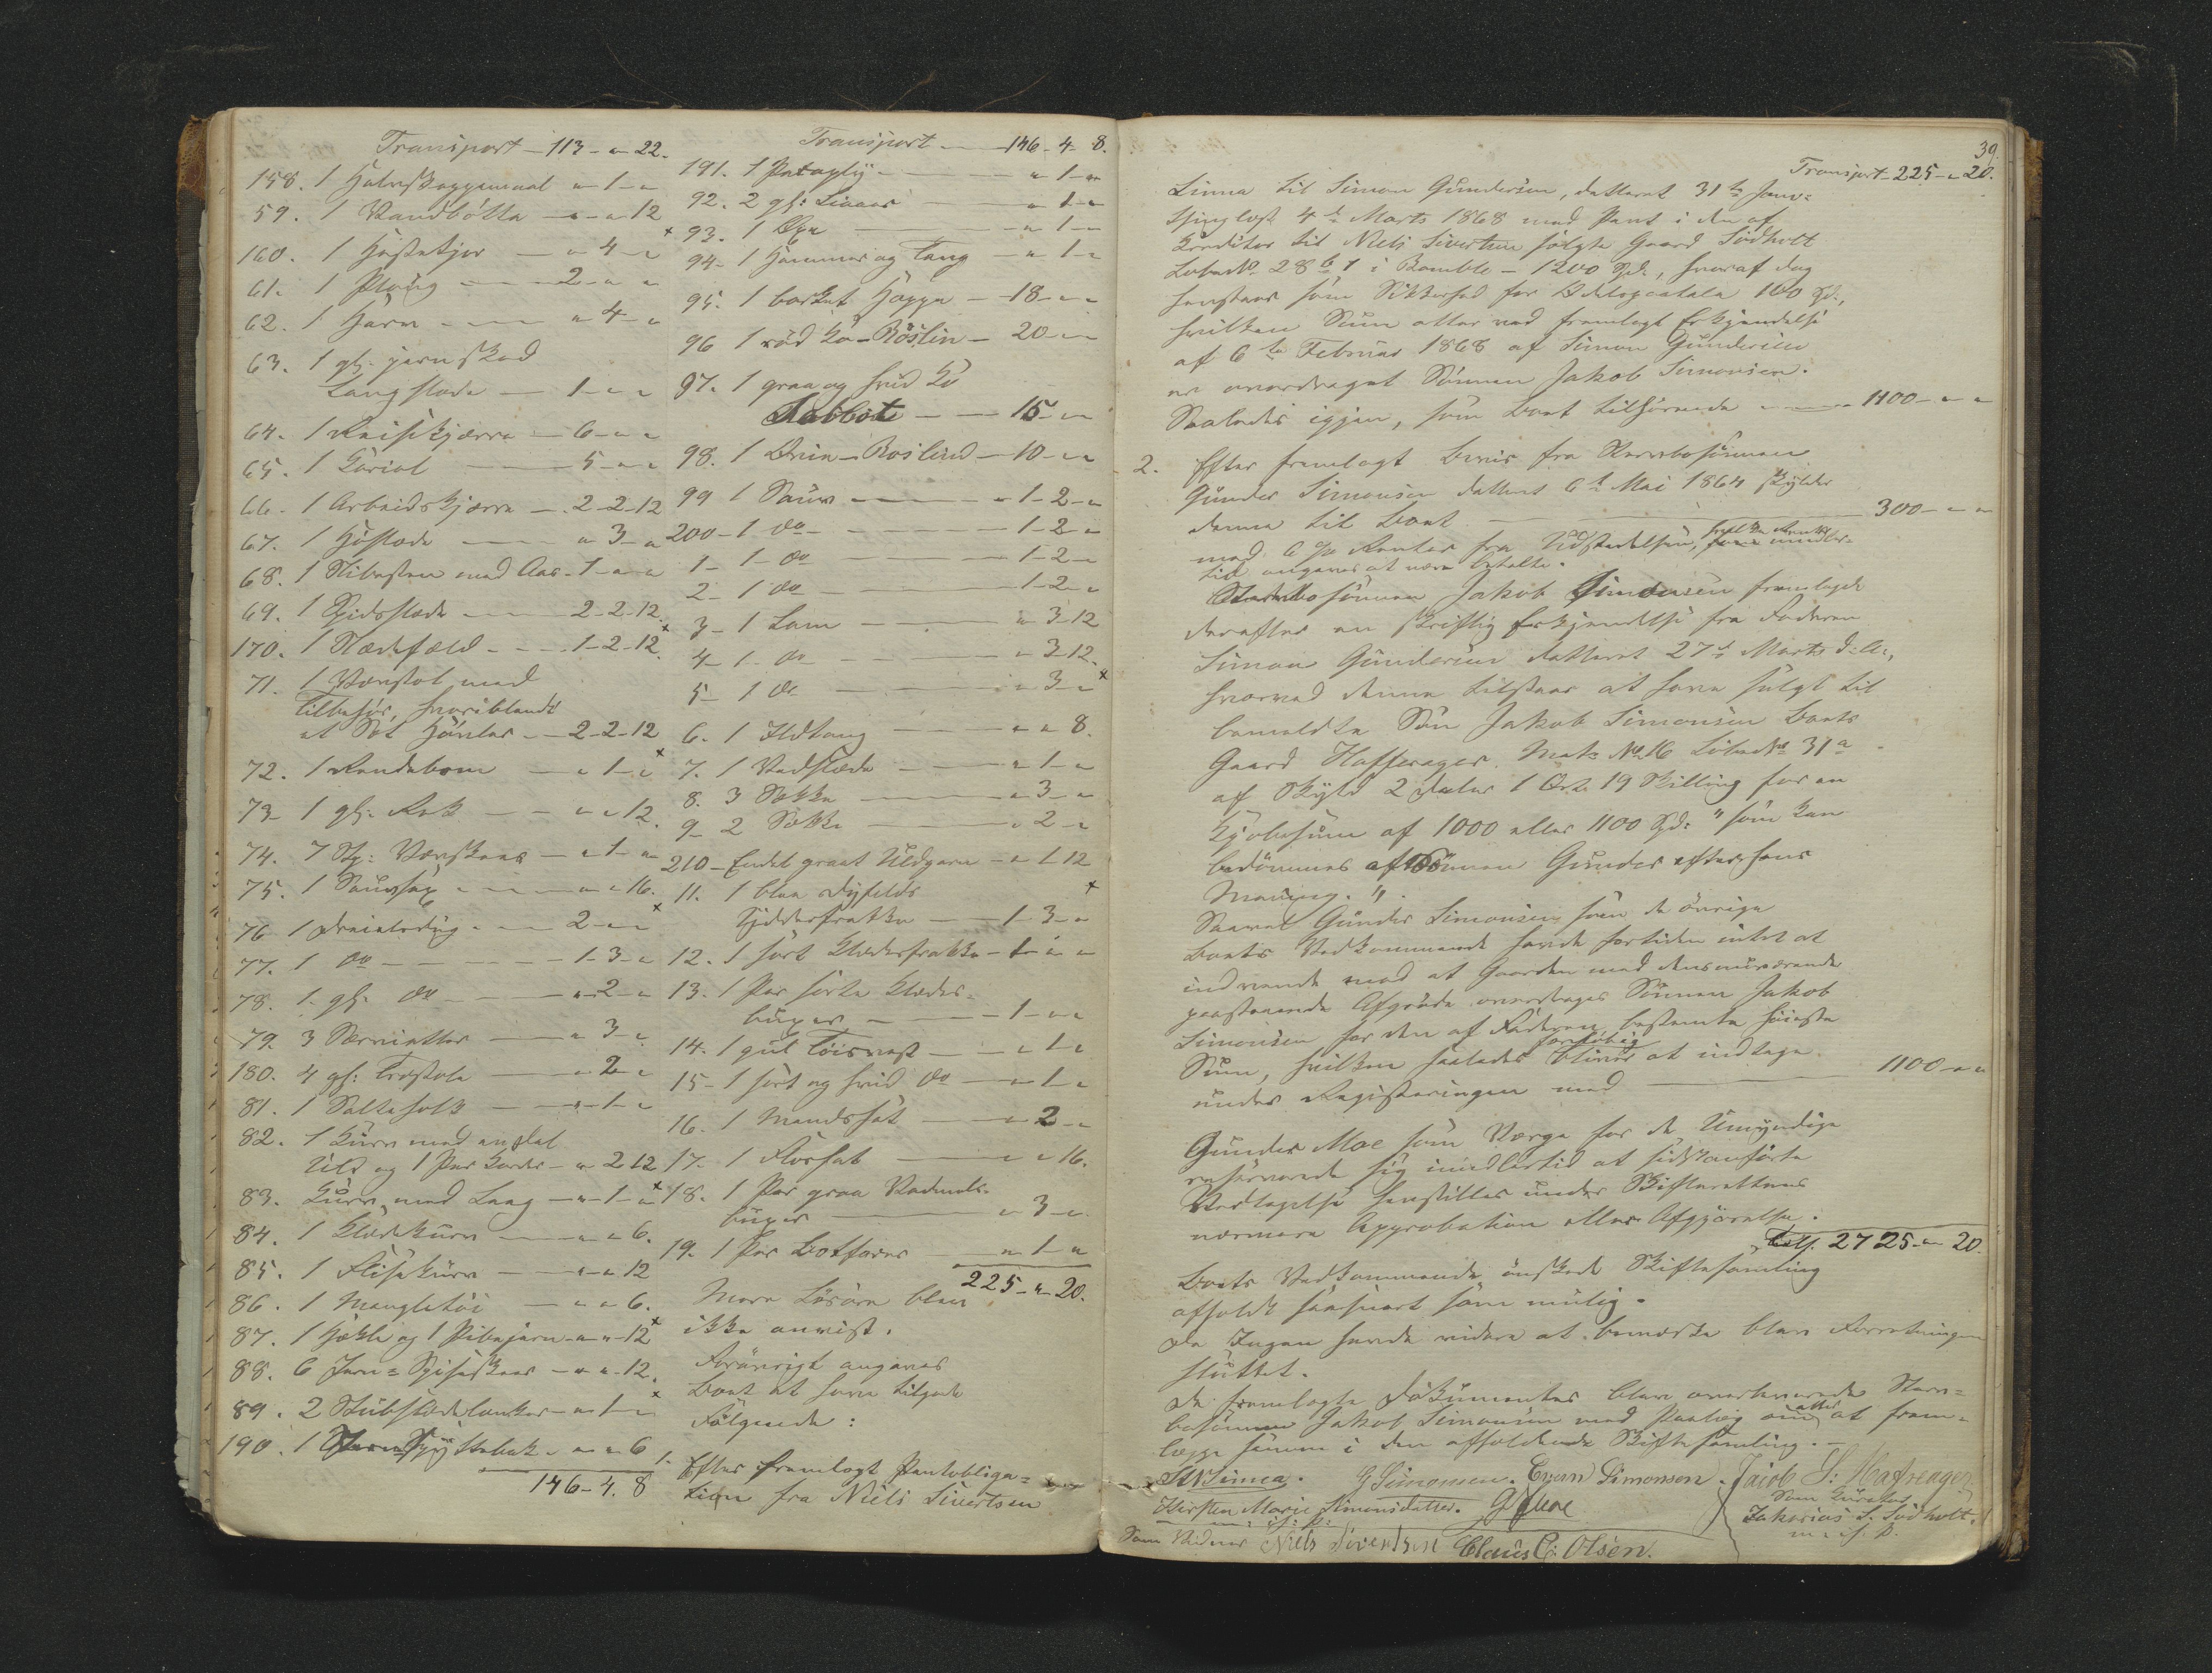 Transport - 113 - " - 22.
158. 1 Halvskjæppemaal " - 1 - "
59. 1 Vandbøtte - " - " 12
160. 1 Hestekjør - " 4 - "
61. 1 Ploug - 2 - " "
62. 1 Harv - " 4 - "
63. 1 gl: jernskod
Langslæde - 1 - " "
64. 1 Reisekjærre - 6 - " "
65. 1 Kariol - 5 - " "
66. 1 Arbeidskjærre - 2 - 2 - 12
67. 1 Høslæde - " 3 - "
68. 1 Slibesten med Aas - 1 - " "
69. 1 Spidsslæde - 2 - 2 - 12
170. 1 Slædefæld - 1 - 2 - 12
71. 1 Vævstol med
Tilbehør, hvoriblandt
et Sæt Hovler - 2 - 2 - 12
72. 1 Rendebom - " 1 - "
73 1 gl: Rok - " " 12
74. 7 Stk: Vævskeer - " 1 - "
75. 1 Sauesax - " " 16.
76 1 2 - " "
77. 1 do - 1 - 3 - "
78. 1 gl: do - " 2 - "
79. 3 Servietter - " 3 - "
180. 4 gl: Træstole - " 2 - "
81. 1 Salteholk - " 1 - "
82. 1 Kurv med en Del
Uld og 1 Par Karder - " 2 12
83. Kurv med Laag - " - 1 - "
84. 1 Klædekurv - " " 6.
85. 1 Flisekurv - " " 12
86. 1 Mangletøi - " " 6.
87. 1 Hækle og 1 Pibejern - " " - 12
88. 6 Jern-Spiseskeer - " " - 12.
89. 2 - " 1 - "
190. 1 - " " 6
146 - 4. 8
Transport - 146 - 4 - 8.
191. 1 - " 1 - "
92. 2 gl: Liaaer - " 1 - "
93. 1 Øxe - " 1 - "
94 - 1 Hammer og Tang - " 1 - "
95. 1 borket Hoppe - 18 - " "
96 1 rød Ko - Röslin - 20 - " "
97. 1 graa og hvid Ko
15 - " "
98. 1 Qvie - Roslind - 10 - " "
99 1 Sauv - 1 - 2 - "
200 - 1 do - 1 - 2 - "
1 - 1 - do 1 - 2 - "
2 - 1 do - 1 - 2 - "
3 - 1 Lam - " 3 - 12
4 - 1 - do - " 3 - 12.
5 - 1 do " 3 - "
6. 1 Ildtang - " " 8.
7. 1 Vedslæde - " 1 - "
8. 3 Sække - " 3 - "
9 - 2 Sække - " 2 - "
210 - Endel graat Uldgarn - " 1 12
11. 1 blaa Dyffels
Sjødderfrakke - 1 - 3 - "
12. 1 sort Klædesfrakke - 1 - " "
13. 1 Par sorte Klædes-
buxer - 1 - " "
14. 1 gul Tøisvest - " 1 "
15 - 1 sort og hvid do - " 1 - "
16. 1 Mandshat - " 2 - "
17. 1 Florhat - " " 16.
18. 1 Par graa Vadmels-
buxer - " 3 - "
19. 1 Par Botforer - " 1 - "
225 - " - 20.
Mere Løsøre blev
ikke anvist.
Forøvrigt angaves
Boet at have tilgode
Følgende:
1. Efter fremlagt Pantobliga-
tion fra Niels Sivertsen
39.
Transport - 225 - " 20.
Linna til Simon Gundersen, datteret 31te Janr
thinglæst 4de Marts 1868 med Pant i den af
Kreditor til Niels Sivertsen solgte Gaard Sødholt
Løbe No 28 b 1 i Bamble - 1200 Spd., hvoraf dog
henstaaer som Sikkerhed for 100 Spd.,
hvilken Sum atter ved fremlagt Erkjendelse
af 6te Februar 1868 af Simon Gundersen
er overdraget Sønnen Jakob Simonsen.
Saaledes igjen, som Boet tilhørende - 1100 - " "
2. Efter fremlagt Bevis fra Stervbosønnen
Gunder Simonsen datteret 6te Mai 1864 skylder
denne til Boet - 300 - " "
med 6 % Renter fra Udstedelsen, hvilke Renter imidler-
tid angaves at være betalte.
Stervbosønnen Jakob Simonsen fremlagde
derefter en skriftlig Erkjendelse fra Faderen
Simon Gundersen datteret 27de Marts d: A:,
hvorved denne tilstaar at have solgt til
bemeldte Søn Jakob Simonsen Boets
Gaard Hafsrager. Matr No 16 Løbe No 31a
af Skyld 2 Daler 1 Ort 19 Skilling for en
Kjøbesum af 1000 eller 1100 Spd: " som kan
bedømmes af Sønnen Gunder efter hans
Mening. ".
Saavel Gunder Simonsen som de øvrige
Boets Vedkommende havde fortiden intet at
indvende mod at Gaarden med dens nuværende
paastaaende Afgrøde overdrages Sønnen Jakob
Simonsen for den af Faderen bestemte høieste
Sum, hvilken saaledes foreløbig bliver at indtage
under Registeringen med - 1100 - " "
Gunder Moe som Værge for de Umyndige
reserverede sig imidlertid at sidstanførte
Vedtagelse henstilles under Skifterettens
nærmere Approbation eller Afgjørelse.
2725 - " 20.
Boets Vedkommende ønskede Skiftesamling
afholdt saasnart som mulig.
Da Ingen havde videre at bemærke blev Forretningen
sluttet.
De fremlagte Dokumenter blev overleverede Sterv-
bosønnen Jakob Simonsen med Paalæg om atter at frem-
lægge samme i den afholdende Skiftesamling. -
G Simonsen. Even Simonsen. Jacob S: Hafsrager
Kirsten Marie Simonsdatter. G Moe Som Kurator
m: i: P: Zakarias S. Sødholt.
m. i. P.
Som Vidner Niels Sivertsen Claus C: Olsen.